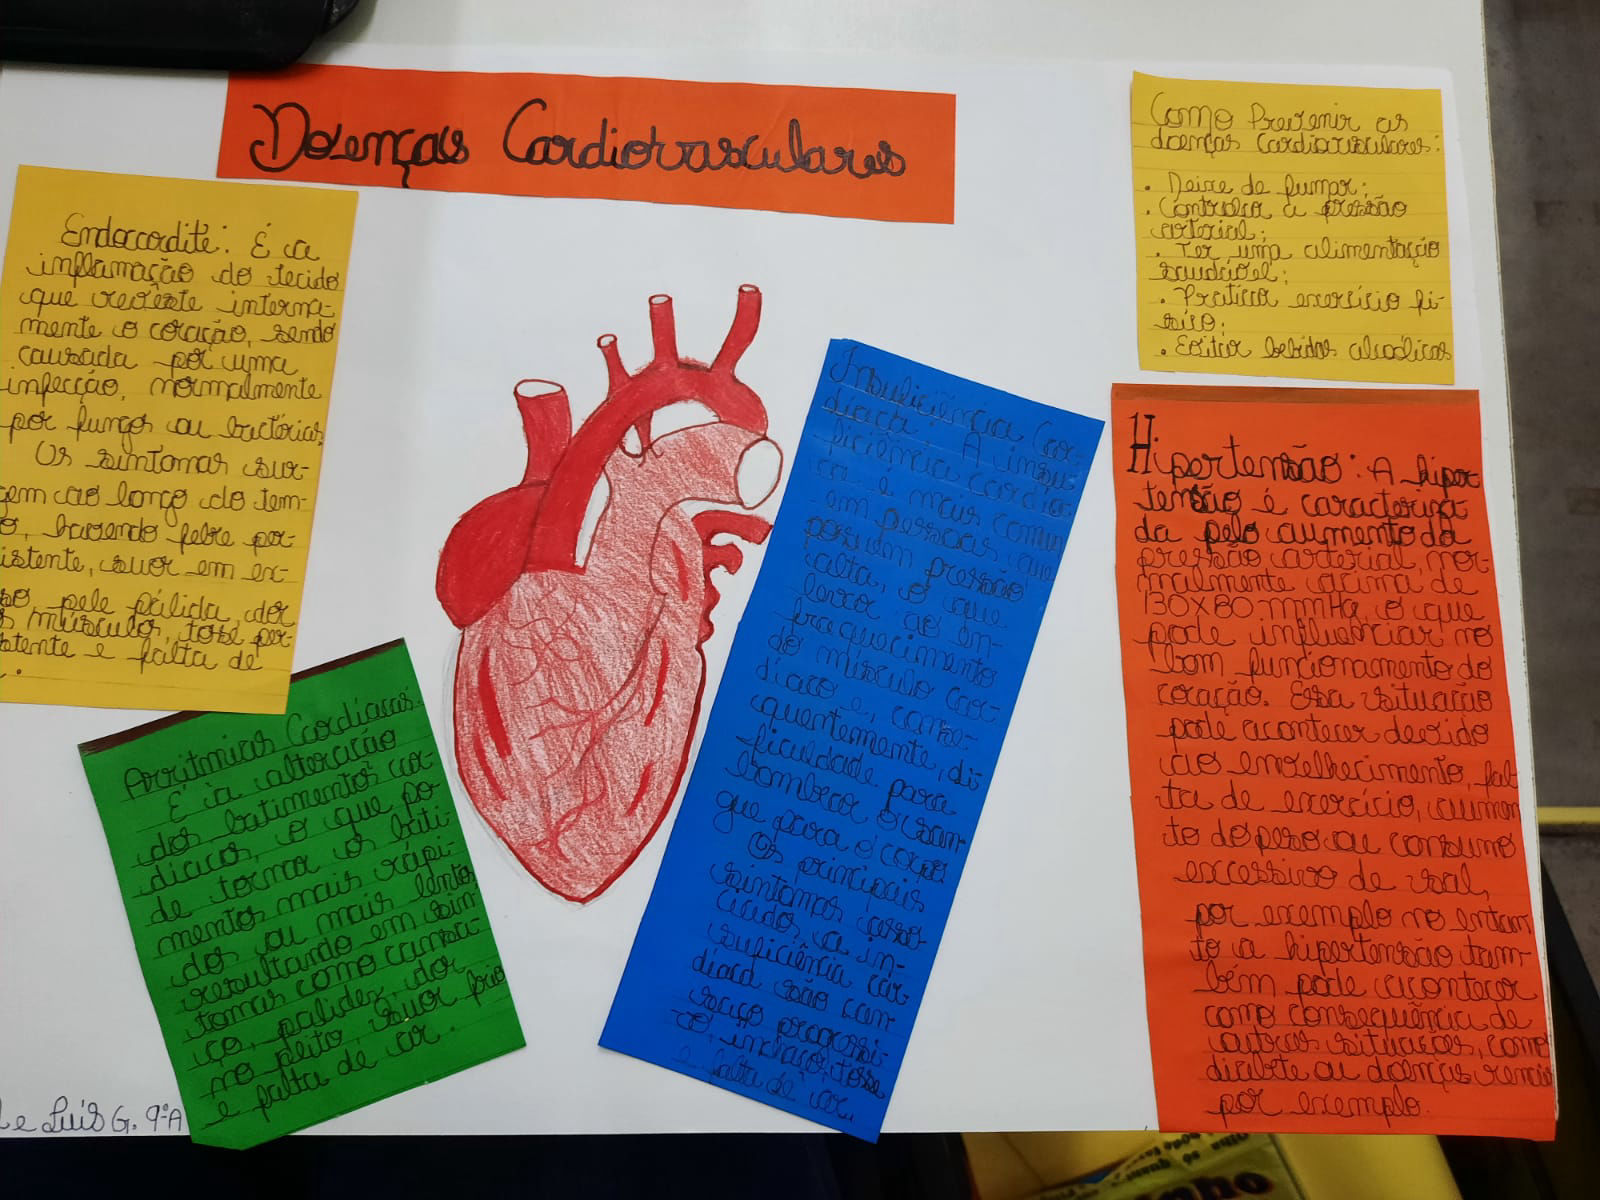 Doenças Cardiovasculares
Endocardite: É a
inflamação do tecido
que reveste interna-
mente o coração, sendo
causada por uma
infecção, normalmente
por fungos ou bactérias
Os sintomas sur-
gem ao longo do tem-
o, havendo febre per-
istente, suor em ex-
so pele pálida, dor
s músculos, tosse per-
stente e falta de
.
Arritmias Cardíacas:
É a alteração
dos batimentos car
díacos, o que po
de tornar os bati-
mentos mais rápi-
dos ou mais lentos,
resultando em sin-
tomas como cansa-
ço, palidez, dor
no peito suor frio
e falta de ar.
e Luís G. 9ºA
Insuficiência Car-
díaca: A insu-
ficiência cardía-
ca é mais comum
em pessoas que
possuem pressão
alta, o que
levar ao en-
fraquecimento
do músculo car-
díaco e, conse-
quentemente, di-
ficuldade para
bombear o san-
gue para o corpo.
Os principais
sintomas asso-
ciados a in-
suficiência car-
díaca são can-
saço progressi-
vo, inchaço, tosse
e falta de ar.
Como Prevenir as
doenças Cardiovasculares:
. Deixe de fumar;
. Controlar a pressão
arterial;
. Ter uma alimentação
saudável;
. Praticar exercício fí-
sico;
. Evitar bebidas alcoólicas
Hipertensão: A hiper
tensão é caracteriza
da pelo aumento da
pressão arterial, nor-
malmente acima de
130x80 mmHg, o que
pode influenciar no
bom funcionamento do
coração. Essa situação
pode acontecer devido
ao envelhecimento, fal
ta de exercício, aumen
to do peso ou consumo
excessivo de sal,
por exemplo no entan
to a hipertensão tam-
bém pode acontecer
como consequência de
outras situações, como
diabete ou doenças renais
por exemplo.